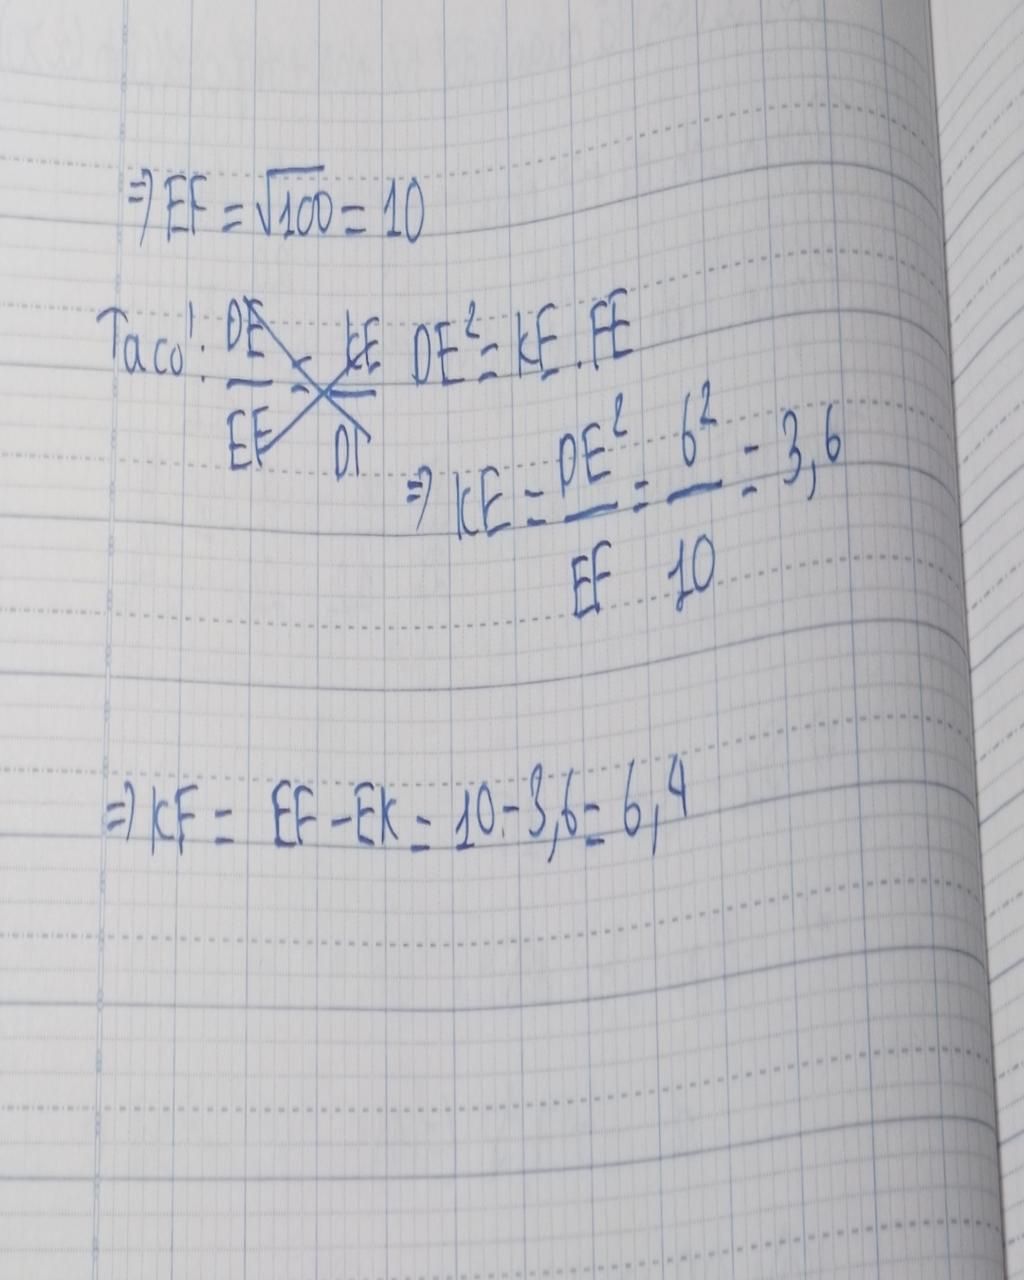 ⇒ EF = √100 = 10
Ta có: DE/EF = KE/DE DE² = KE . FE
⇒ KE = DE²/EF = 6²/10 = 3,6
⇒ KF = EF - EK = 10 - 3,6 = 6,4